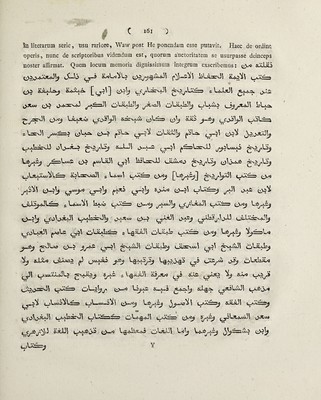 ( 161 )
In literarum serie, tam rariore, Waw post He ponendam esse putavit. Haec de ordine
operis, nunc de scriptoribus videndum est, quorum auctoritatem se usurpasse deinceps
noster affirmat. Quem locum memoria dignissimum integrum exscribemus: نقلته من
كتب الايمة الحفاظ الاعلام المشهورين بالامامة في ذلك والمعتمدين
عند جميع العلماء كتاريخ البخاري وابن [ابي] خيثمة وخليفة بن
خياط المعروف بشباب والطبقات الصغر والطبقات الكبر لمحمد بن سعد
كاتب الواقدي وهو ثقة وان كان شيخه الواقدي ضعيفا ومن الجرح
والتعديل لابن ابي حاتم والثقات لابي حاتم بن حبان بكسر الحاء
وتاريخ نيسابور للحاكم ابي عبد الله وتاريخ بغداد للخطيب
وتاريخ همدان وتاريخ دمشق للحافظ ابي القاسم بن عساكر وغيرها
من كتب التواريخ [وغيرها] ومن كتب اسماء الصحابة كالاستيعاب
لابن عبد البر وكتاب ابن منده وابي نعيم وابي موسى وابن الاثير
ومن كتب المغازي والسير ومن كتب ضبط الاسماء كالموتلف
والمختلف للدارقطني وعبد الغني بن سعيد والخطيب البغدادي وابن
ماكولا وغيرها ومن كتب طبقات الفقهاء كطبقات ابي عاصم العبادي
وطبقات الشيخ ابي اسحق وطبقات الشيخ ابي عمرو بن صالح وهو
مقطعات وقد شرعت في تهذيبها وترتيبها وهو نفيس لم يصنف مثله ولا
قريب منه ولا يغني عنه في معرفة الفقهاء غيره ويقبح بالمنتسب الي
مذهب الشافعي جهله واجمع فيه عيونا من روايات كتب الحديث
وكتب الفقه وكتب الاصول وغيرها ومن كتب الانساب كالانساب لابي
سعد السمعاني وغيره ومن كتب المبهمات ككتاب الخطيب البغدادي
وابن بشكوال وغيرهما واما اللغات فمعظمها من تهذيب اللغة للازهري
Y
وكتاب